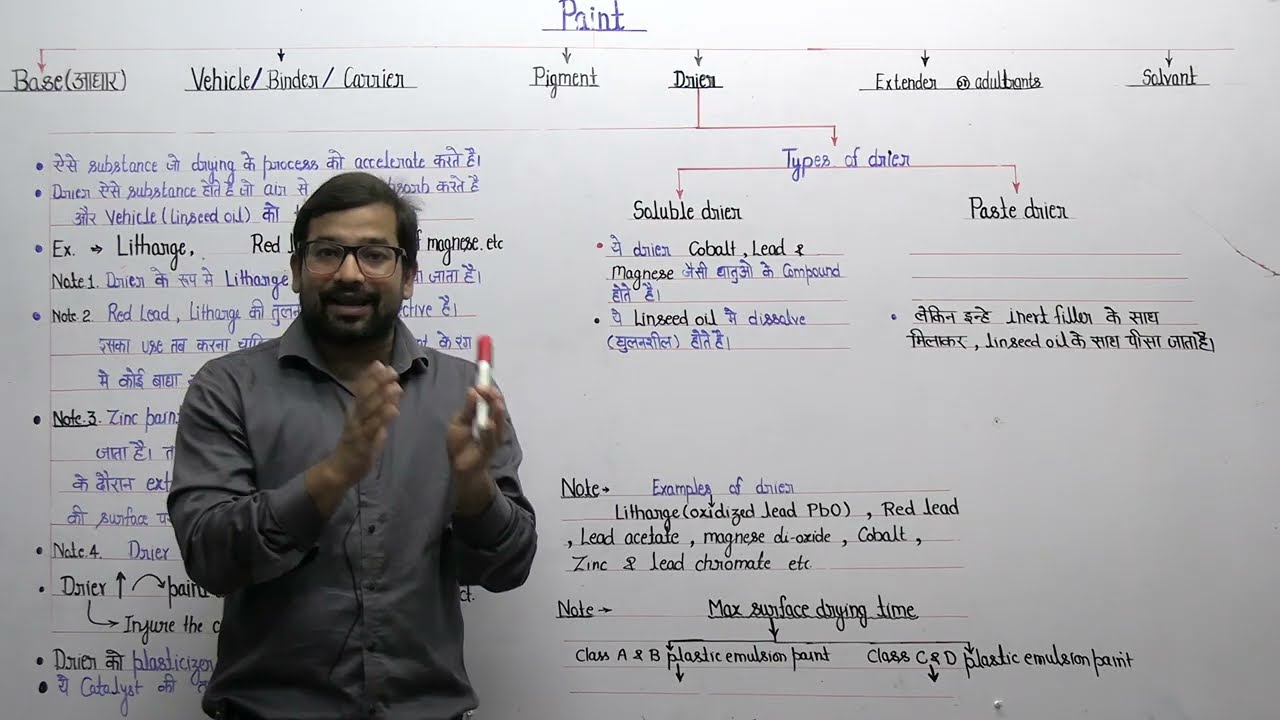 Paint
Base (आधार)
Vehicle/ Binder/ Carrier
Pigment
Drier
Extender or adultrants
Salvant
• ऐसे substance जो drying के process को accelerate करते है।
• Drier ऐसे substance होते है जो air से
करते है
और Vehicle (linseed oil) को
• Ex. → Litharge, Red
magnese. etc
Note 1. Drier के रूप मे Litharge
जाता है।
• Note 2. Red Lead, Litharge की
है।
इसका use तब करना
के रंग
मे कोई बाधा
• Note.3. Zinc
जाता है।
के दौरान
की surface
• Note.4. Drier
• Drier ↑
→ Injure the
• Drier को plasticizer
• ये Catalyst की
Types of drier
Soluble drier
• ये drier Cobalt, Lead &
Magnese जैसी धातुओ के Compound
होते है।
• ये Linseed oil मे dissolve
(घुलनशील) होते है।
Paste drier
• लेकिन इन्हे inert filler के साथ
मिलाकर, linseed oil के साथ पीसा जाता है।
Note → Examples of drier
Litharge (oxidized lead PbO), Red lead
, Lead acetate, magnese di-oxide, Cobalt,
Zinc & lead chromate etc.
Note → Max surface drying time
Class A & B plastic emulsion paint
Class C & D plastic emulsion paint